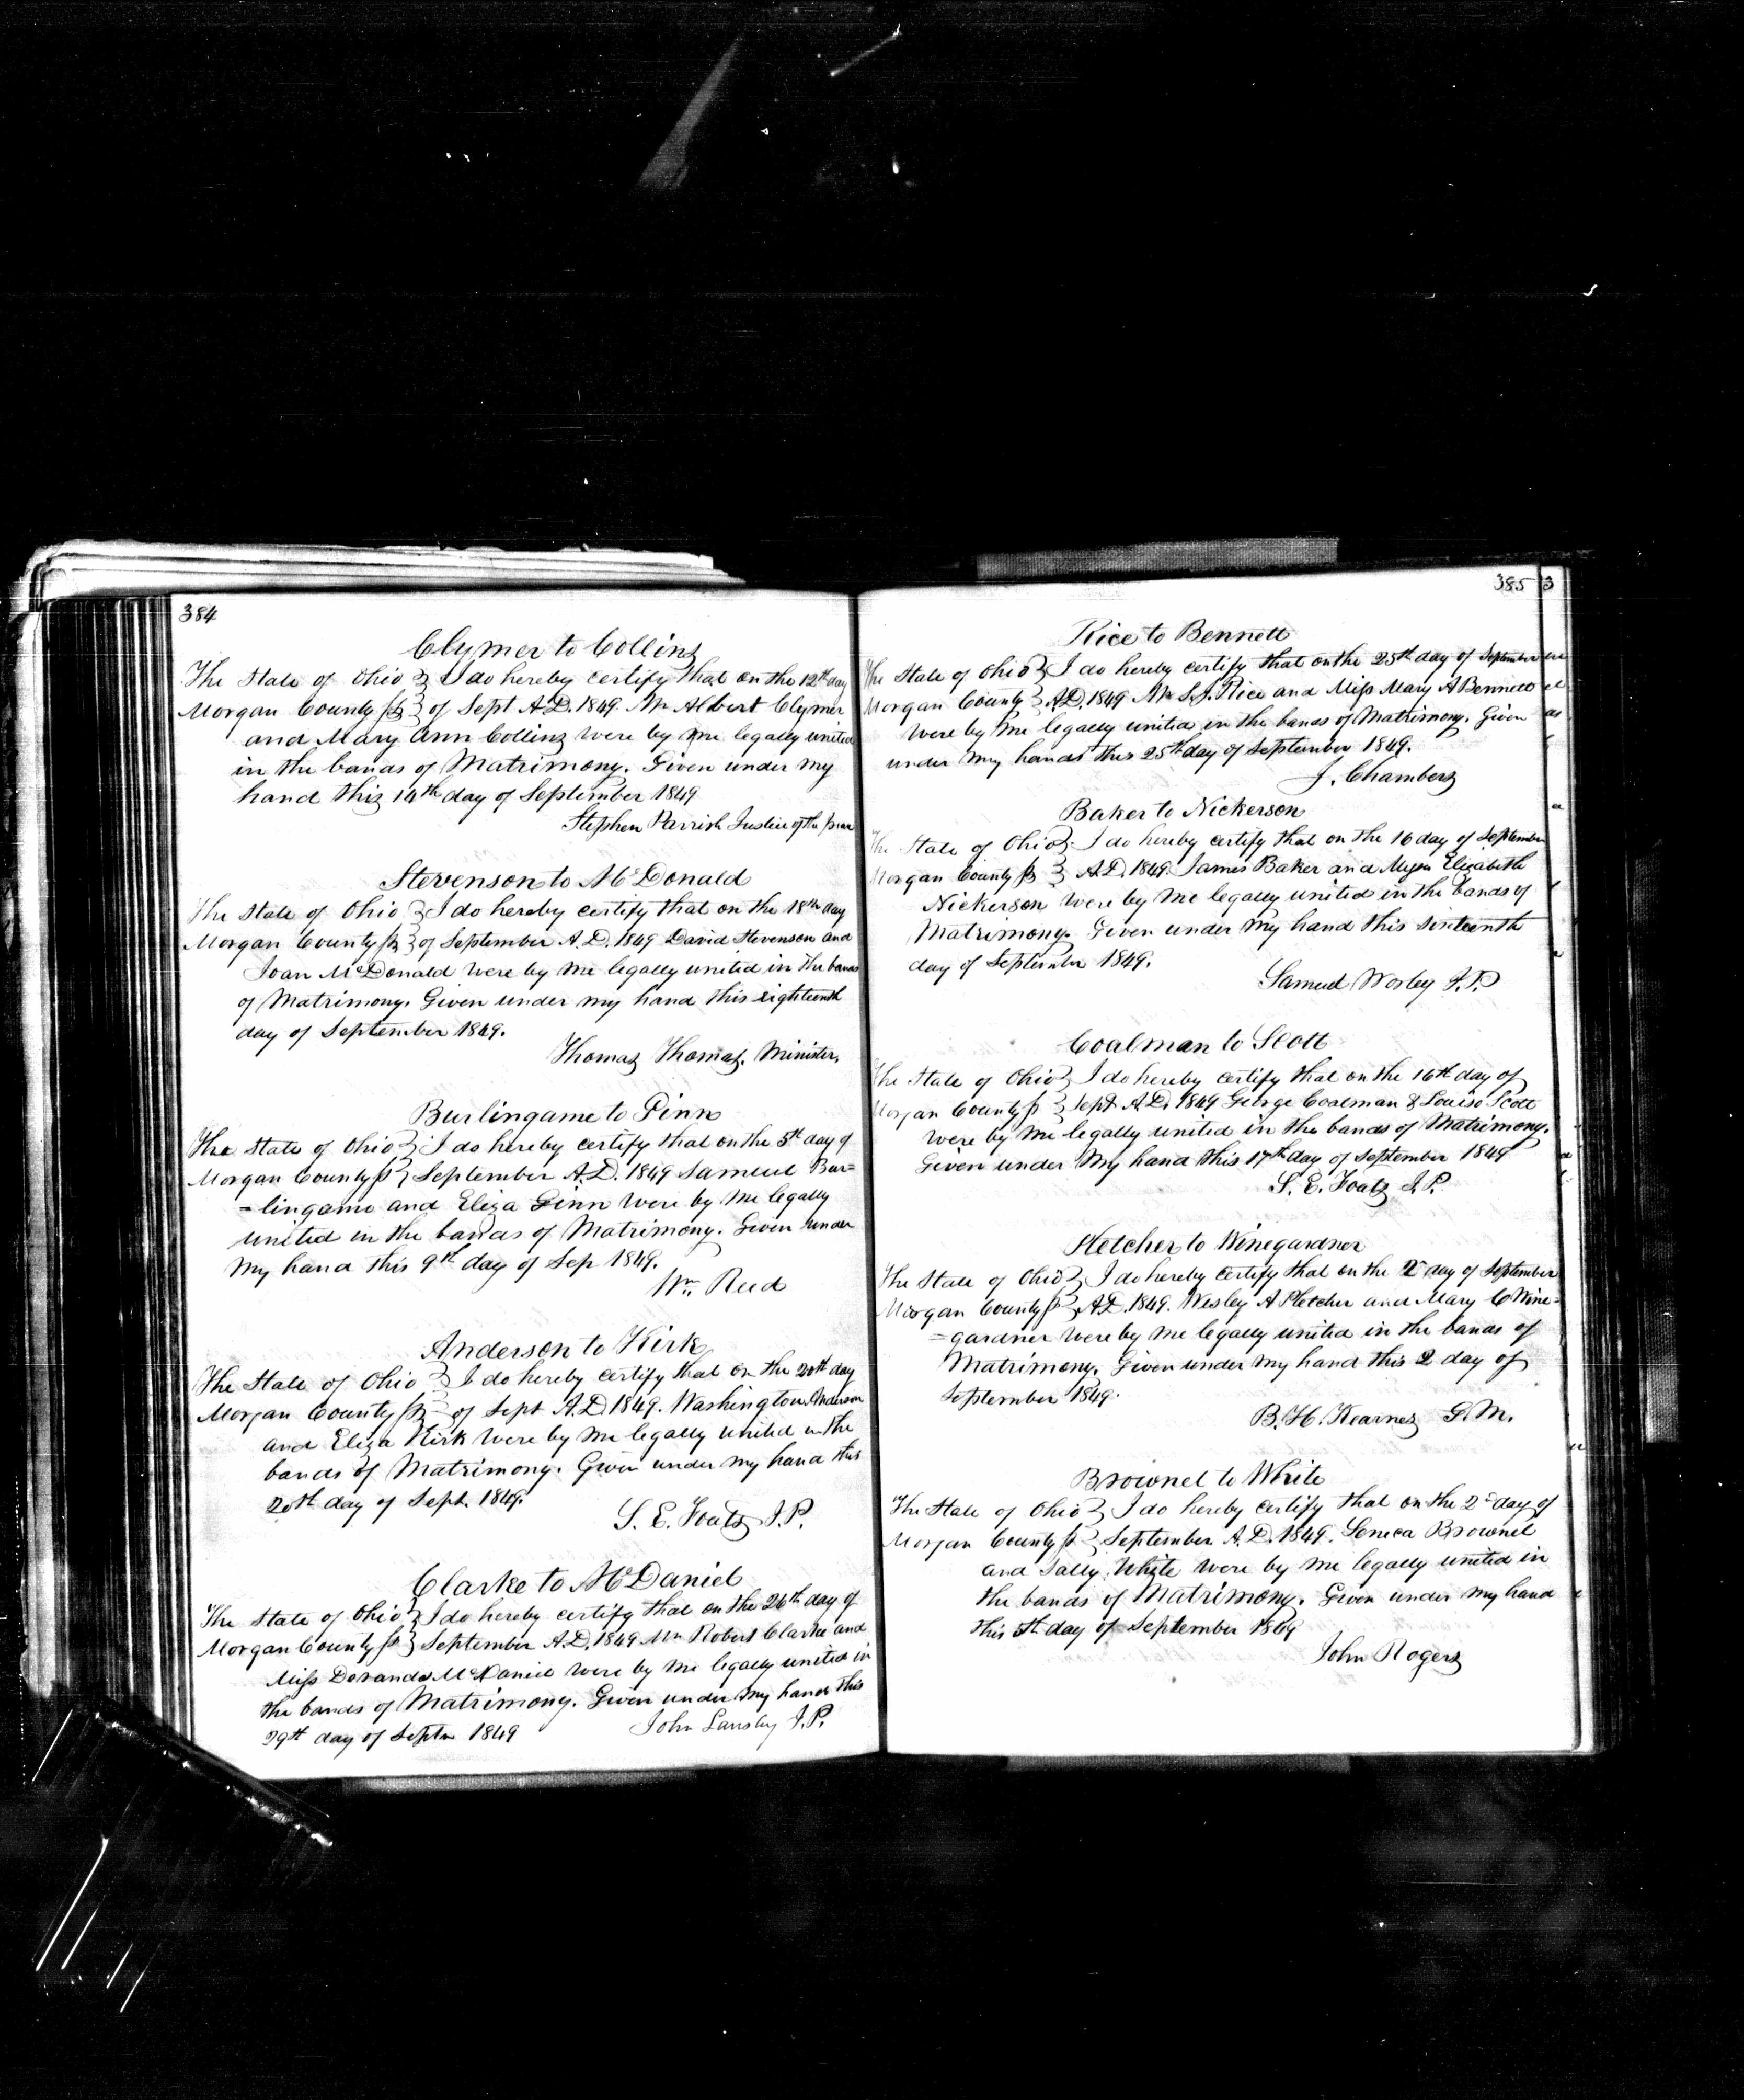 384
Clymer to Collins
The State of Ohio } I do hereby certify that on the 12th day
Morgan County ss } of Sept A.D. 1849. Mr Albert Clymer
and Mary Ann Collins were by me legally united
in the bands of Matrimony. Given under my
hand this 14th day of September 1849
Stephen Parrish Justice of the peace
Stevenson to McDonald
The State of Ohio } I do hereby certify that on the 18th day
Morgan County ss } of September A.D. 1849 David Stevenson and
Joan McDonald were by me legally united in the bands
of Matrimony. Given under my hand this eighteenth
day of September 1849.
Thomas Thomas. Minister.
Burlingame to Finn
The State of Ohio } I do hereby certify that on the 5th day of
Morgan County ss } September A.D. 1849 Samuel Bur=
=lingame and Eliza were by me legally
united in the bands of Matrimony. Given under
my hand this 9th day of Sep 1849.
Wm. Reed
Anderson to Kirk
The State of Ohio } I do hereby certify that on the 20th day
Morgan County ss } of Sept A.D. 1849. Washington Anderson
and Eliza Kirk were by me legally united in the
bands of Matrimony. Given under my hand this
20th day of Sept. 1849.
S. E. Foutz J.P.
Clarke to McDaniel
The State of Ohio } I do hereby certify that on the 26th day of
Morgan County ss } September A.D. 1849 Mr Robert Clarke and
Miss McDaniel were by me legally united in
the bands of Matrimony. Given under my hand this
29th day of Septm 1849 John J.P.
385
Rice to Bennett
The State of Ohio } I do hereby certify that on the 25th day of September
Morgan County } A.D. 1849 Mr S.J. Rice and Miss Mary A Bennett
were by me legally united in the bands of Matrimony. Given
under my hands this 25th day of September 1849.
J. Chambers
Baker to Nickerson
The State of Ohio } I do hereby certify that on the 16 day of September
Morgan County ss } A.D. 1849. James Baker and Elizabeth
Nickerson were by me legally united in the bands of
Matrimony. Given under my hand this sixteenth
day of September 1849.
Samuel Worley J.P.
Coalman to Scott
The State of Ohio } I do hereby certify that on the 16th day of
Morgan County ss } Sept A.D. 1849 George Coalman & Louisa Scott
were by me legally united in the bands of Matrimony.
Given under my hand this 17th day of September 1849
S. E. Foutz J.P.
Pletcher to Winegardner
The State of Ohio } I do hereby certify that on the 2 day of September
Morgan County ss } A.D. 1849. Wesley A Pletcher and Mary C Wine=
=gardner were by me legally united in the bands of
Matrimony. Given under my hand this 2 day of
September 1849.
B. H. Kearnes G.M.
Brownel to White
The State of Ohio } I do hereby certify that on the 2d day of
Morgan County ss } September A.D. 1849. Seneca Brownel
and Sally White were by me legally united in
the bands of Matrimony. Given under my hand
this 5th day of September 1849
John Rogers